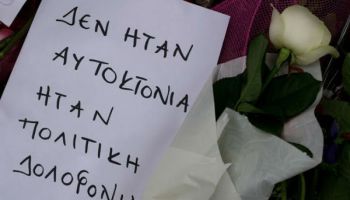 ΔΕΝ ΗΤΑΝ
ΑΥΤΟΚΤΟΝΙΑ
ΗΤΑΝ
ΠΟΛΙΤΙΚΗ
ΔΟΛΟΦΟΝΙΑ